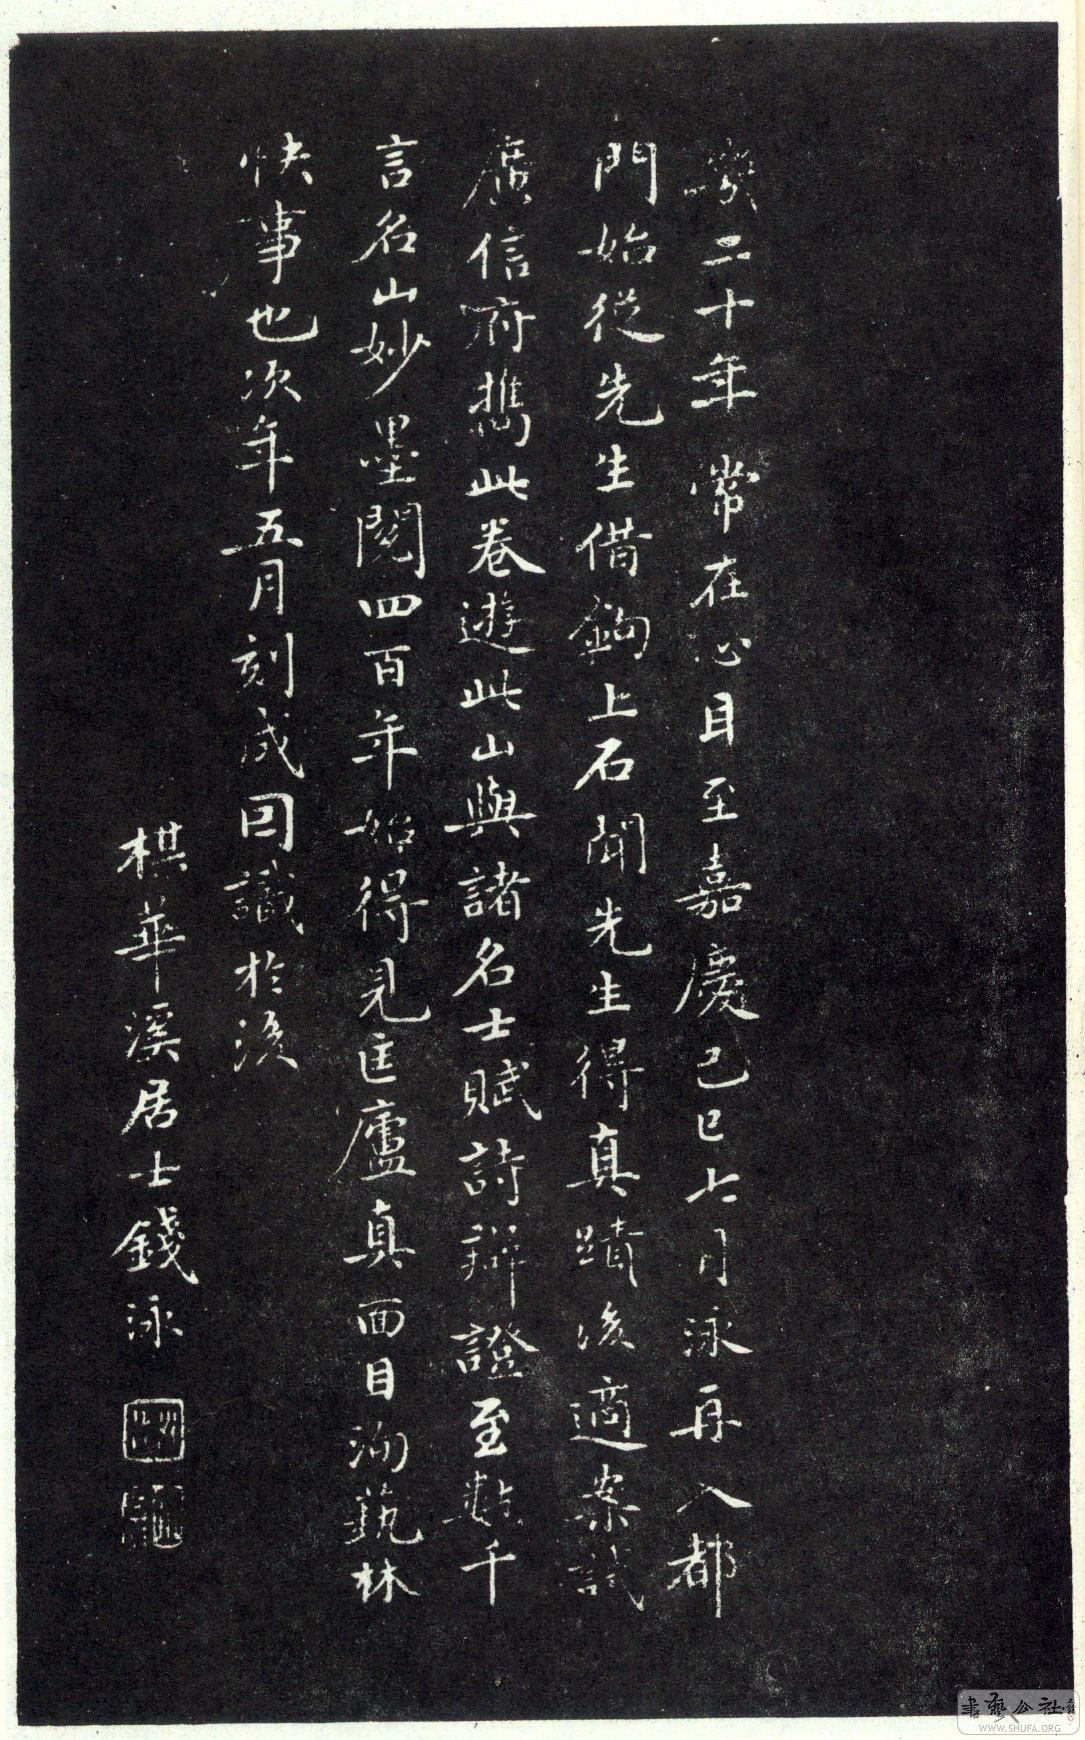 幾二十年常在心目至嘉慶己巳七月泳再入都
門始從先生借鉤上石聞先生得真蹟後適案試
廣信府攜此卷遊此山與諸名士賦詩辯證至數千
言名山妙墨閱四百年始得見匡廬真面目洵藝林
快事也次年五月刻成因識於後
楳華溪居士錢泳
書藝公社
WWW.SHUFA.ORG